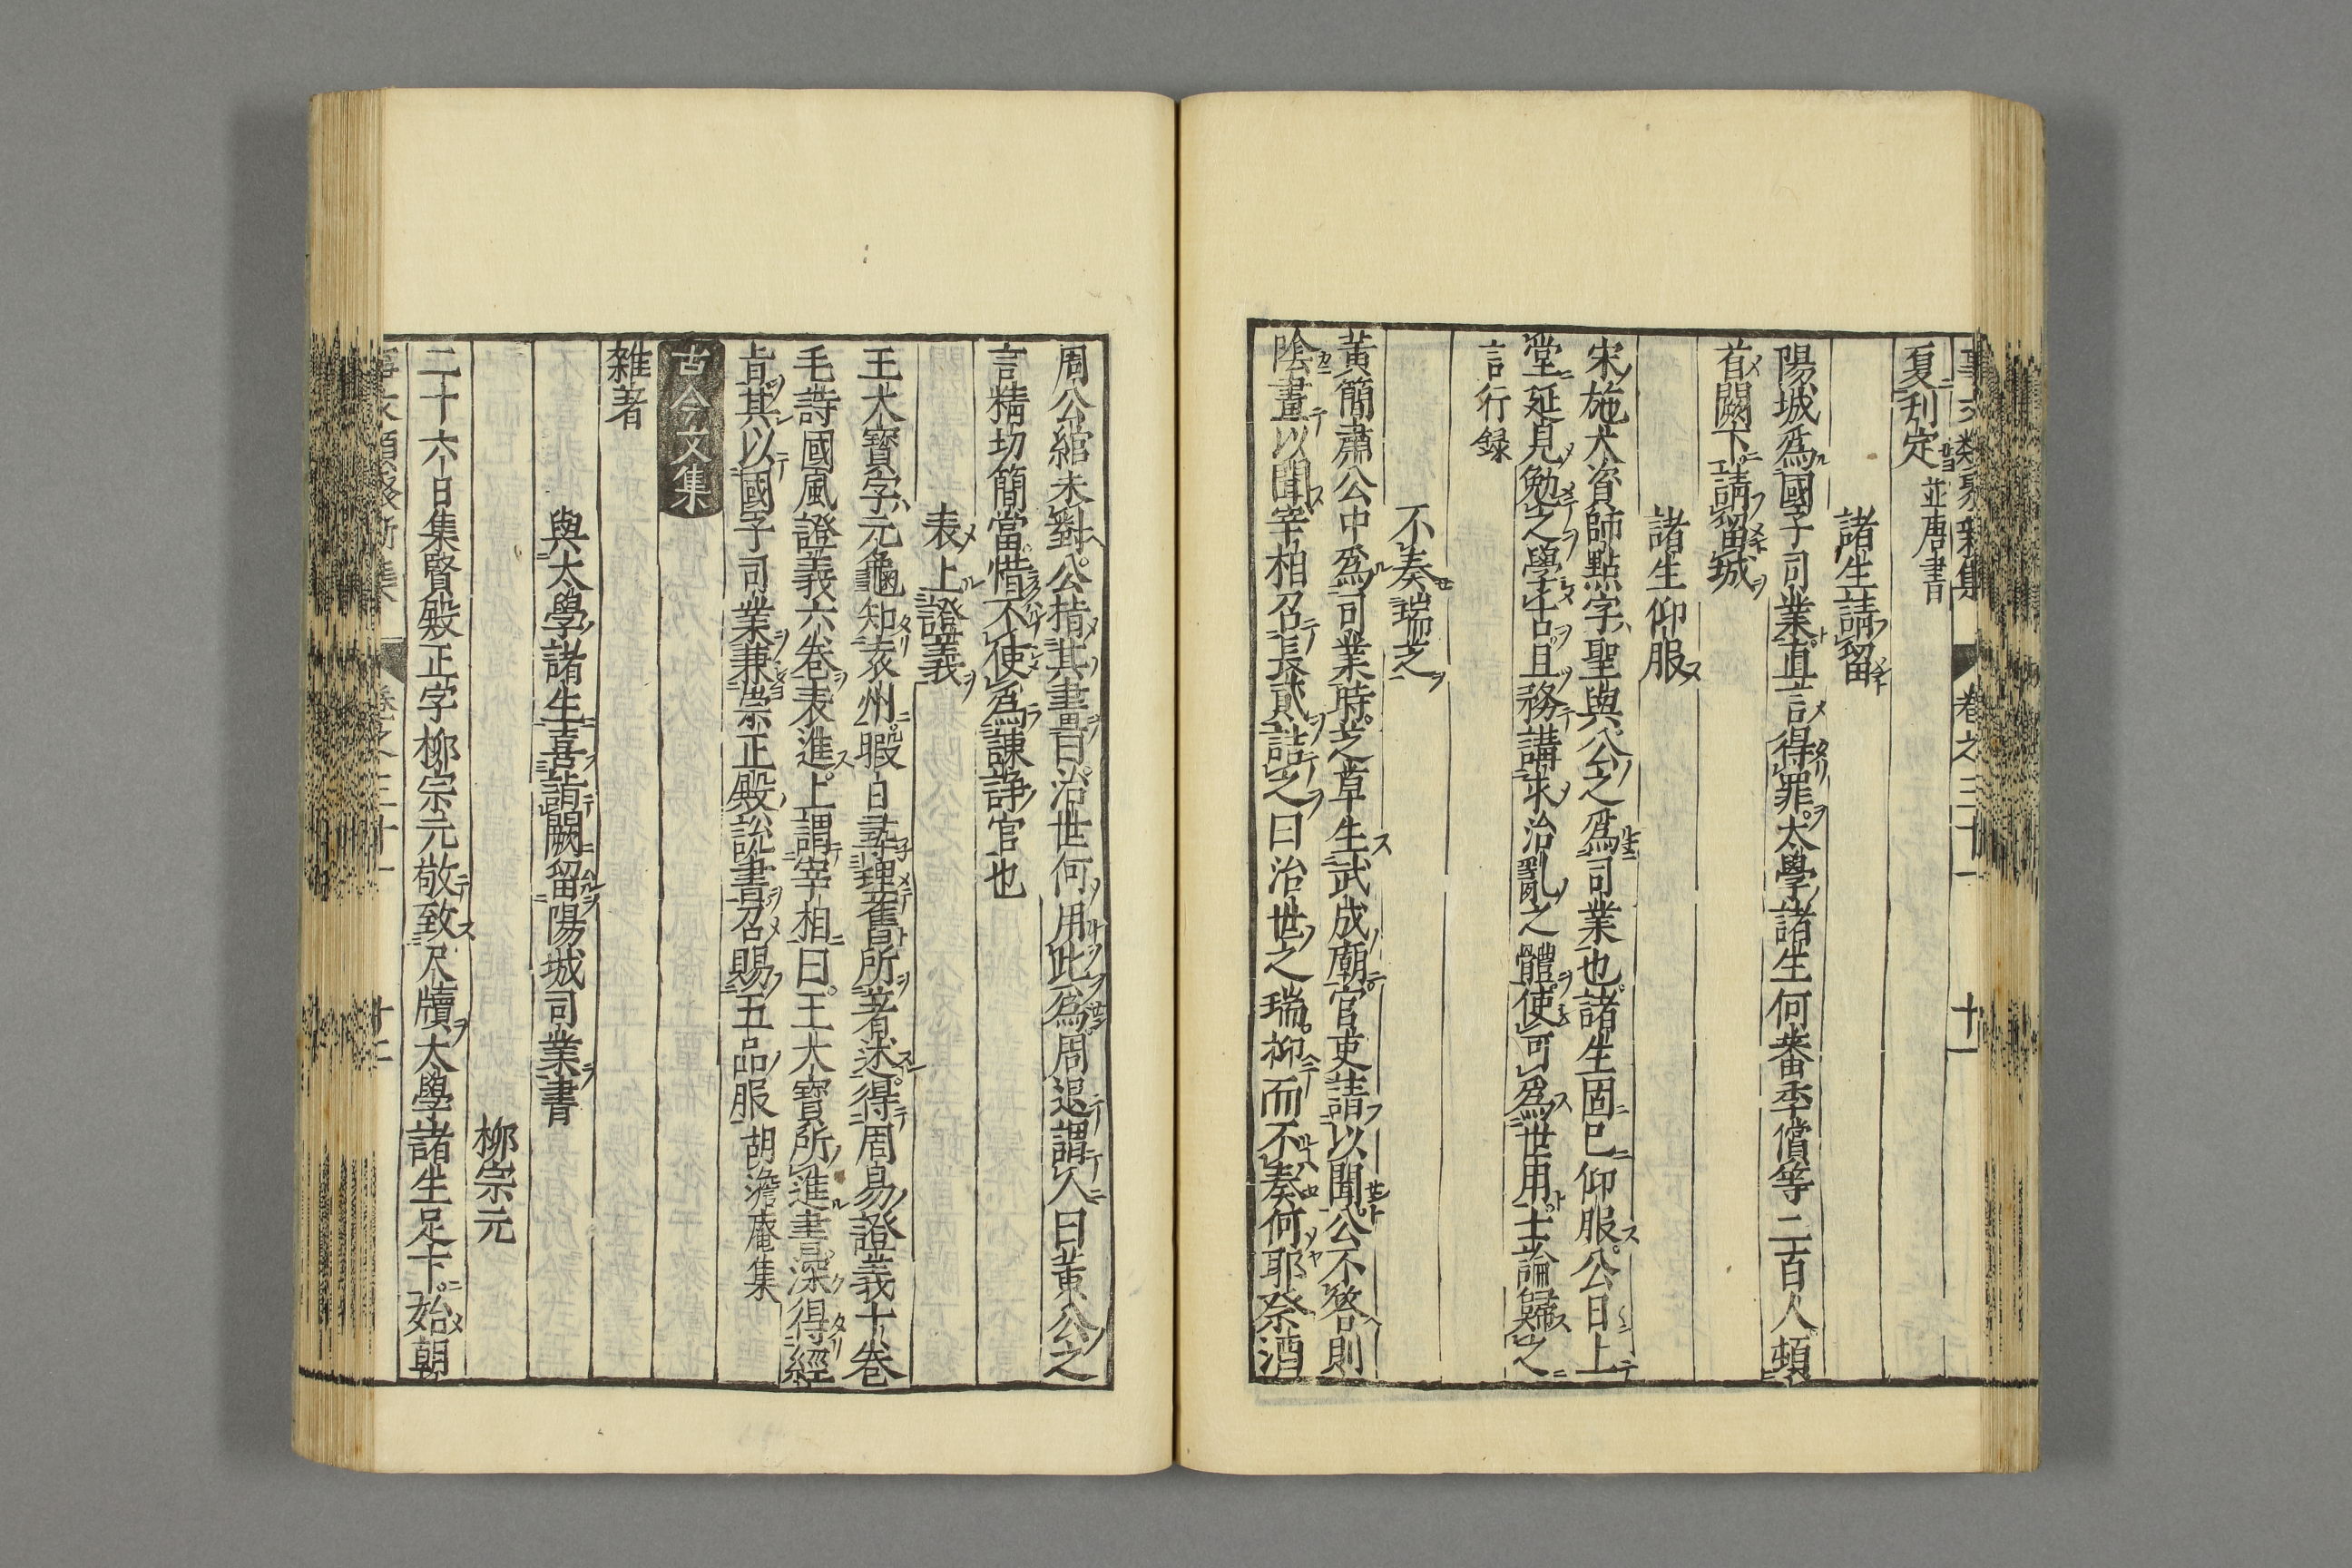 事文類聚新集 卷之三十一 十一
夏刋定 並唐書
諸生請留
陽城爲國子司業直言得罪太學諸生何蕃季償等二百人頓
首闕下請留城
諸生仰服
宋施大資師點字聖與公之爲司業也諸生固已仰服公日上
堂延見勉之學古且務講求治亂之體使可爲世用士論歸之
言行録
不奏瑞芝
黃簡肅公中爲司業時芝草生武成廟官吏請以聞公不答則
陰畫以聞宰相召長貳詰之曰治世之瑞抑而不奏何耶祭酒
周公綰未對公指其畫曰治世何用此爲周退謂人曰黃公之
言精切簡當惜不使爲諫諍官也
表上證義
王大寶字元龜知袁州暇日尋理舊所著述得周易證義十卷
毛詩國風證義六卷表進上謂宰相曰王大寶所進書深得經
旨其以國子司業兼崇正殿說書召賜五品服 胡澹庵集
古今文集
雜著
與大學諸生喜請闕留陽城司業書
柳宗元
二十六日集賢殿正字柳宗元敬致尺牘太學諸生足下始朝
卷之三十一 十二